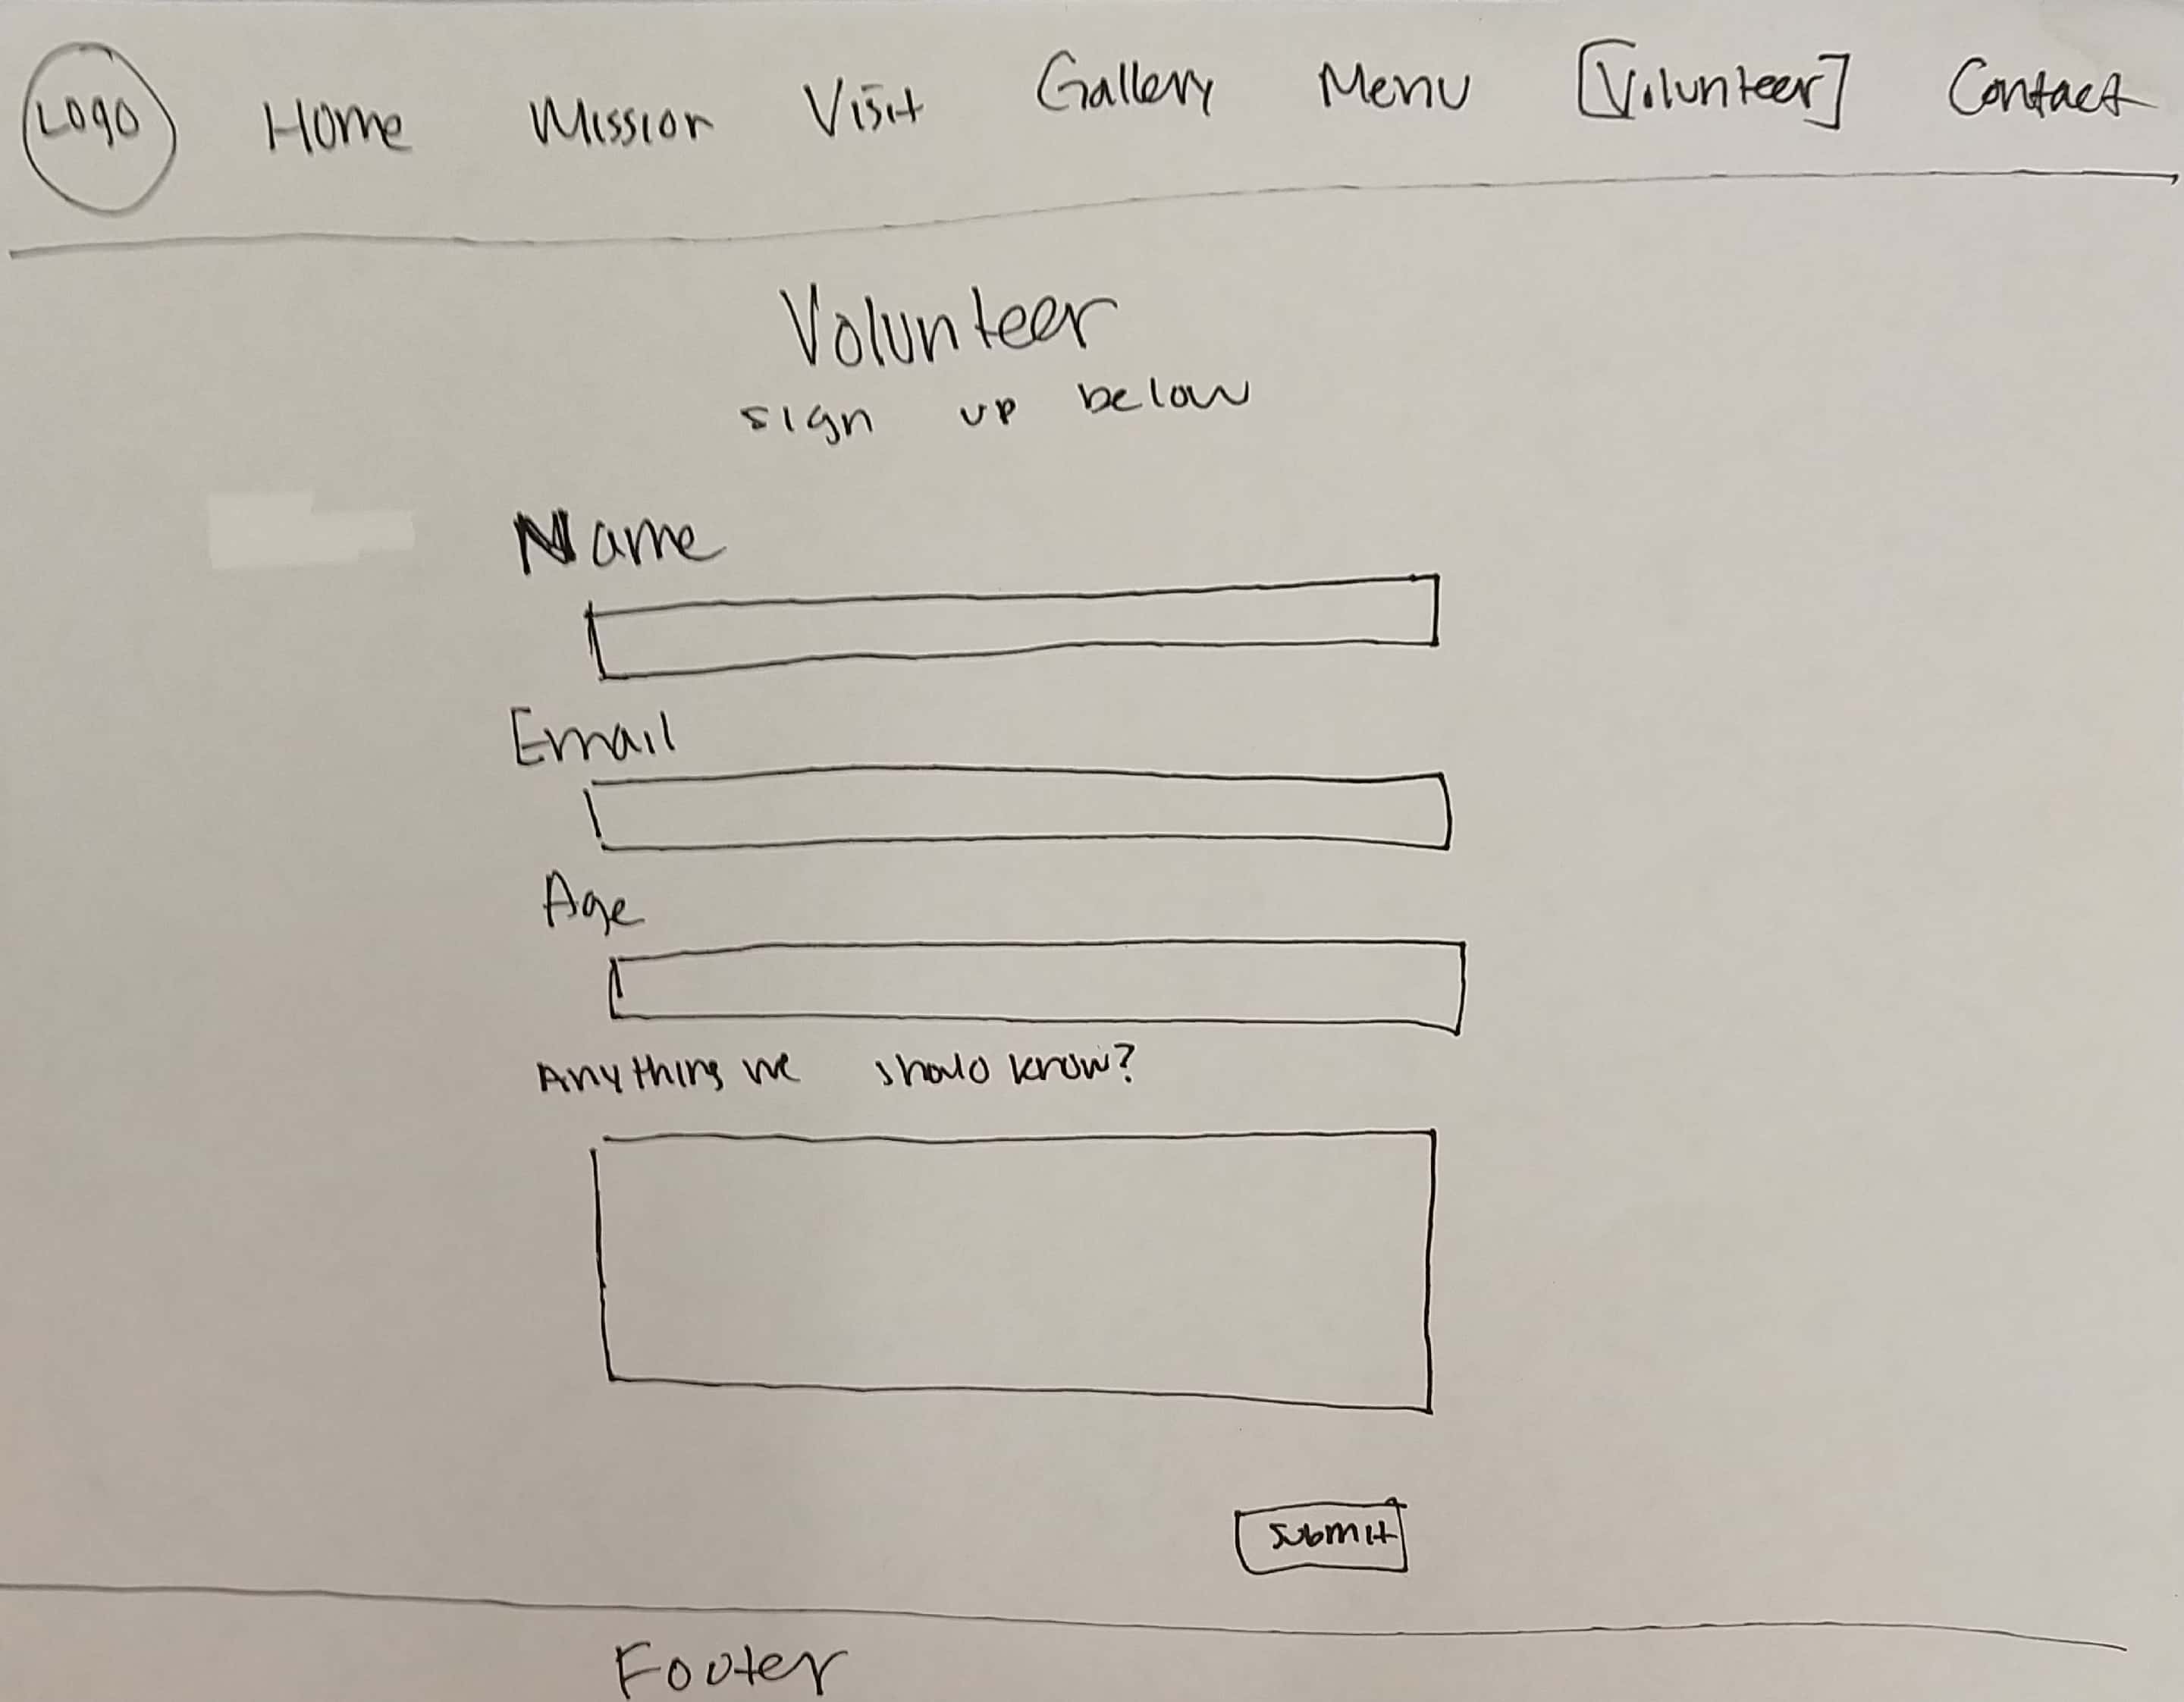 Logo Home Mission Visit Gallery Menu [Volunteer] Contact
Volunteer
sign up below
Name
Email
Age
Anything we should know?
submit
Footer